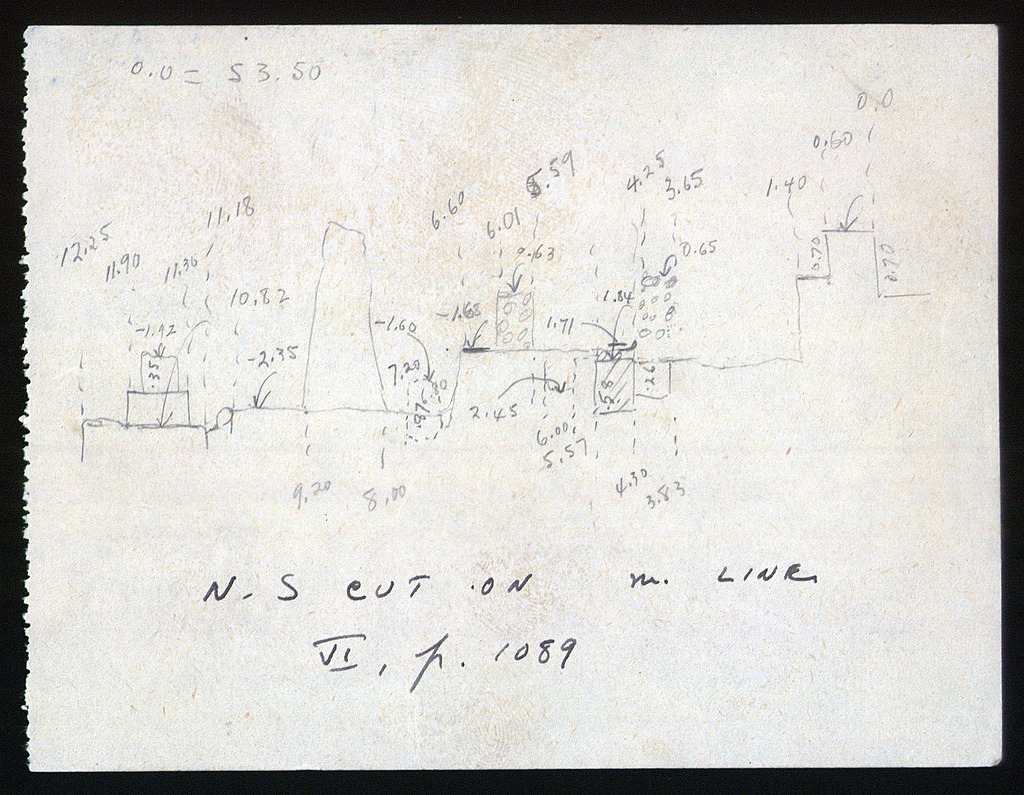 0.0 = 53.50
0.0
0.60
1.40
4.25
3.65
5.59
6.60
6.01
11.18
12.25
11.90
11.36
10.82
0.63
0.65
-1.92
-2.35
-1.60
-1.68
1.71
1.84
0.70
0.70
.35
7.20
.87
2.45
.58
.26
6.00
5.57
9.20
8.00
4.30
3.83
N-S CUT ON m. LINE
VI, p. 1089